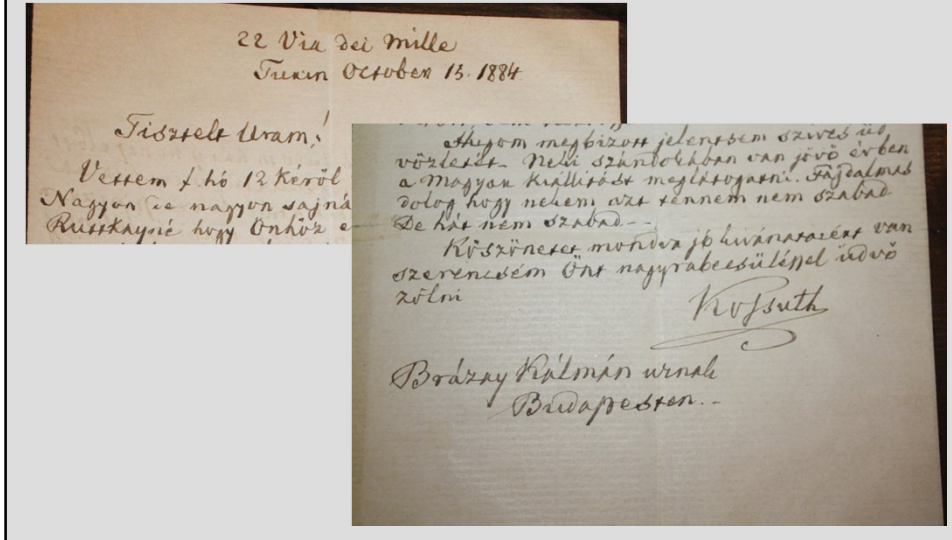 22 Via dei Mille
Turin October 15. 1884
Tisztelt Uram!
Vettem f. hó 12 kéról
Nagyon de nagyon sajná
Ruttkayné hogy Önhöz e
Hugom megbizott jelentsem szives üd
vözletét. Neki szándokában van jövö évben
a Magyar Kiállitást meglátogatni. Fájdalmas
dolog hogy nekem azt tennem nem szabad
De hát nem szabad--
Köszönetet mondva jó kivánataiért van
szerencsém Önt nagyrabecsüléssel üdvö
zölni
Kossuth
Brázay Kálmán urnak
Budapesten.-